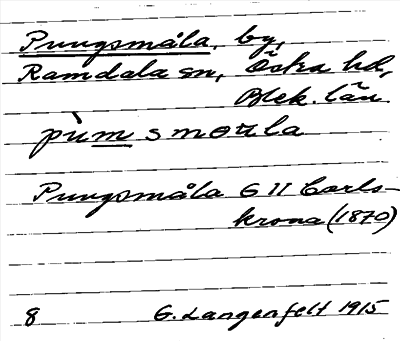 Pungsmåla, by,
Ramdala sn, Östra hd,
Blek. län
pùmsmoꝛla
Pungsmåla G II Carls-
krona (1870)
8 G. Langenfelt 1915